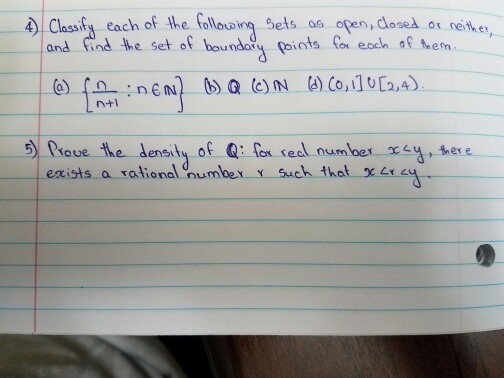 4) Classify each of the following sets as open, closed or neither,
and find the set of boundary points for each of them.
(a) {n/n+1 : n ∈ ℕ} (b) ℚ (c) ℕ (d) (0,1] ∪ [2,4).
5) Prove the density of ℚ: for real number x<y, there
exists a rational number r such that x<r<y.